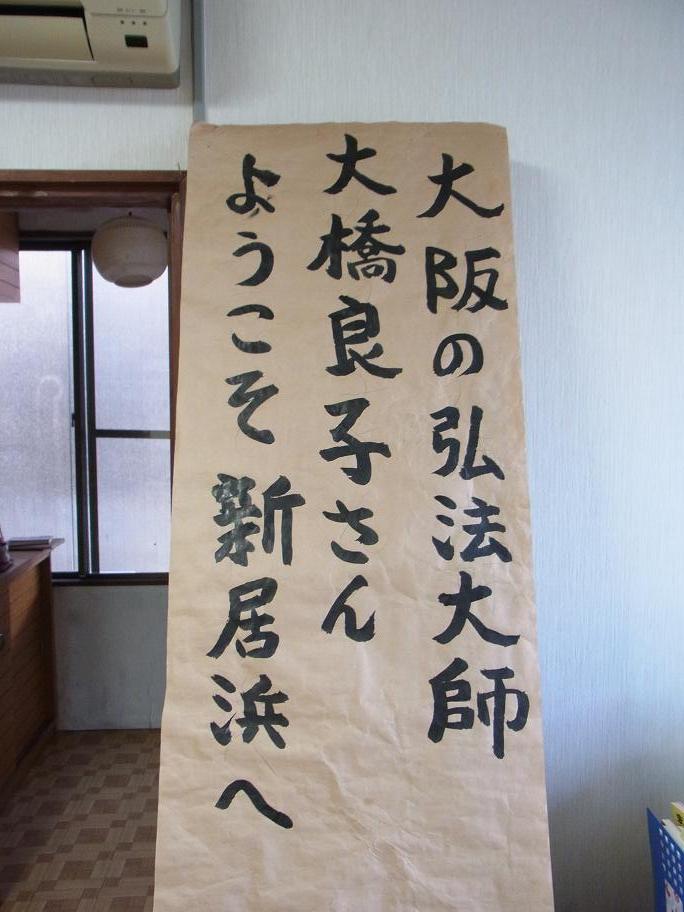 大阪の弘法大師
大橋良子さん
ようこそ新居浜へ